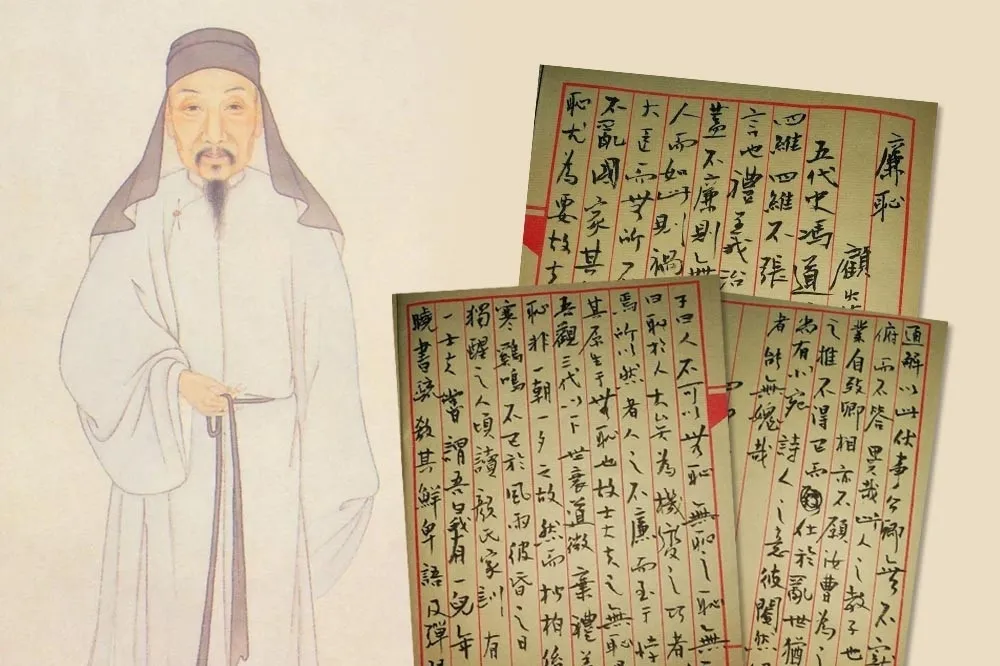 廉恥
顧
五代史馮道
四維四維不張
言也禮義治
蓋不廉則無
人而如此則禍
大臣而無所不
不亂國家其
恥尤為要故夫
子曰人不可以無恥無恥之恥無
曰恥於人大矣為機變之巧者
焉所以然者人之不廉而至于悖
其原生于無恥也故士大夫之無恥
吾觀三代以下世衰道微棄禮義
恥非一朝一夕之故然而松柏後
寒鷄鳴不已於風雨彼昏之日
獨醒之人頃讀顏氏家訓有
一士夫嘗謂吾曰我有一兒年
曉書疏教其鮮卑語及彈
通解以此伏事公卿無不
俯而不答異哉此人之教子也
業自致卿相亦不願汝曹為之
之推不得已而仕於亂世猶
尚有小宛詩人之意彼閹然
者能無媿哉